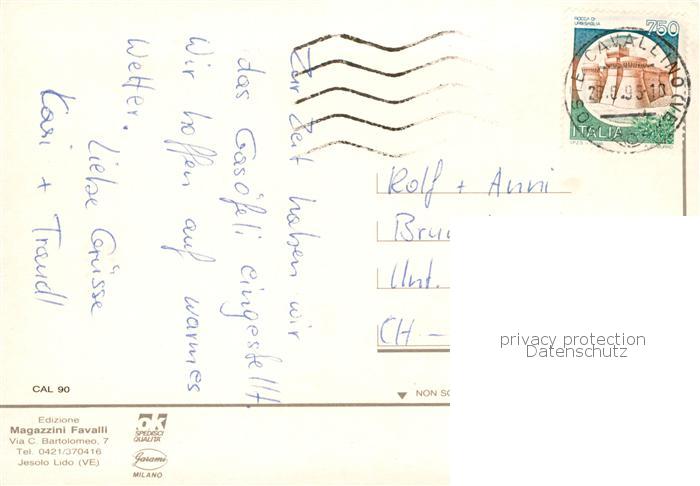 Zur Zeit haben wir
das Gasöfeli eingestellt.
Wir hoffen auf warmes
Wetter.
Liebe Grüsse
Kari + Traudl
ROCCA DI
URBISAGLIA
750
CAVALLINO (VE)
ITALIA
Rolf + Anni
Unt.
CH -
privacy protection
Datenschutz
CAL 90
NON SC
Edizione
Magazzini Favalli
Via C. Bartolomeo, 7
Tel. 0421/370416
Jesolo Lido (VE)
ok
SPEDISCI
QUALITA'
Garami
MILANO